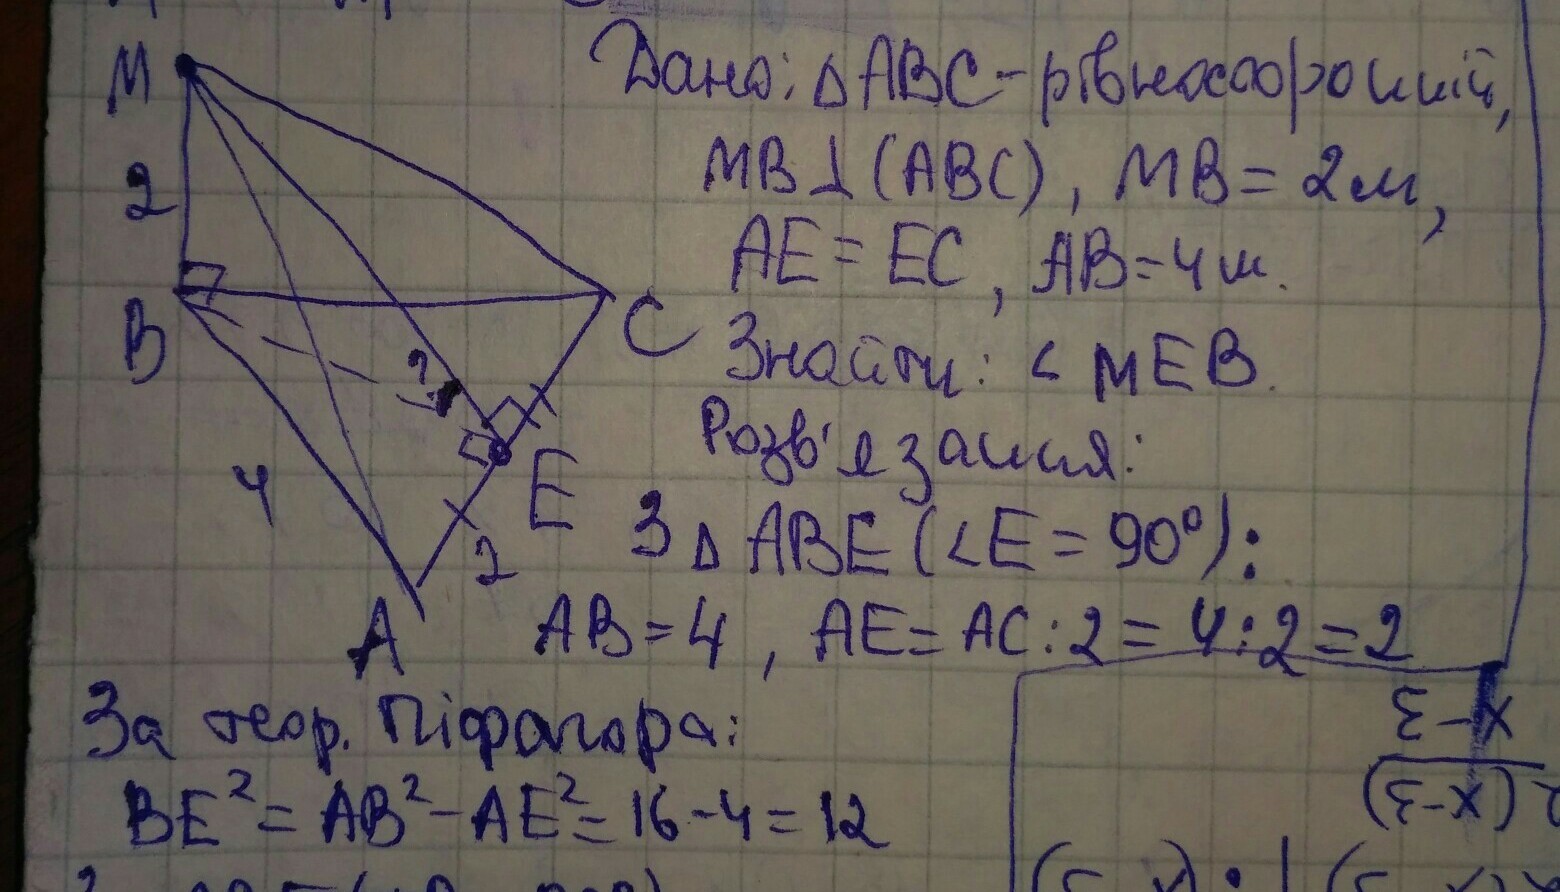 M
2
B
C
?
4
E
2
A
Дано: △ABC - рівносторонній,
MB⊥(ABC), MB = 2м,
AE = EC, AB = 4м.
Знайти: ∠ MEB.
Розв'язання:
З △ ABE (∠E = 90°):
AB = 4, AE = AC : 2 = 4 : 2 = 2
За теор. Піфагора:
BE² = AB² - AE² = 16 - 4 = 12
x-3
(x-3)